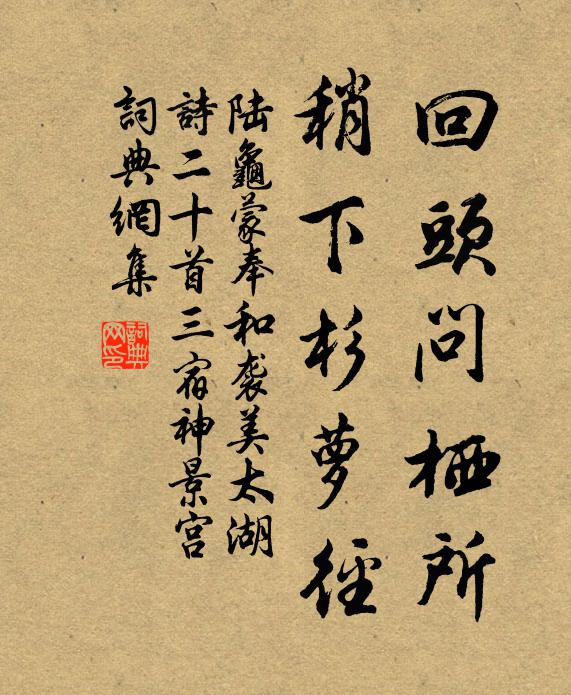 回頭問栖所
稍下杉蘿徑
陆龜蒙奉和袭美太湖
詩二十首三宿神景宫
詞典網集
詞典网印